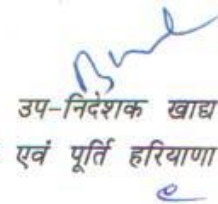 उप-निदेशक खाद्य
एवं पूर्ति हरियाणा